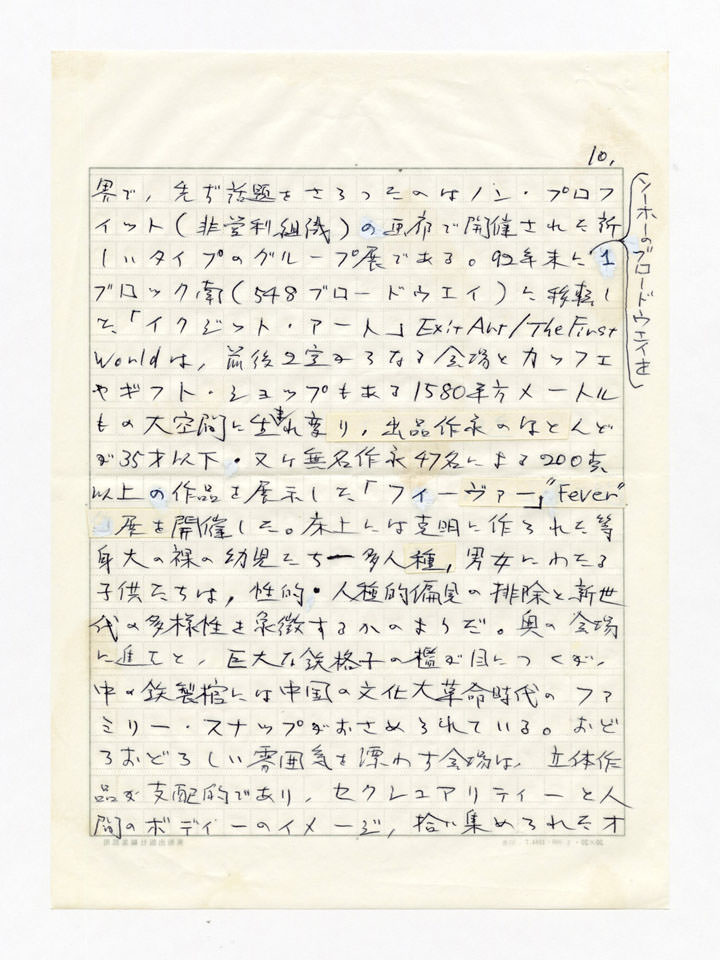 10.
界で，先ず話題をさらったのはノン・プロフ
ィット(非営利組織)の画廊で開催された新
しいタイプのグループ展である。92年末に1
ソーホーのブロードウェイを
ブロック南(548ブロードウエイ)に移転し
た「イクジット・アート」Exit Art/The First
Worldは，前後2室からなる会場とカッフェ
やギフト・ショップもある1580平方メートル
もの大空間に生まれ変り，出品作家のほとんど
が35才以下・又は無名作家47名による200点
以上の作品を展示した「フィーヴァー」"Fever"
展を開催した。床上には克明に作られた等
身大の裸の幼児たちー多人種，男女にわたる
子供たちは，性的・人種的偏見の排除と新世
代の多様性を象徴するかのようだ。奥の会場
に進むと，巨大な鉄格子の檻が目につくが，
中の鉄製棺には中国の文化大革命時代のファ
ミリー・スナップがおさめられている。おど
ろおどろしい雰囲気を漂わす会場は，立体作
品が支配的であり，セクシュアリティーと人
間のボディーのイメージ，拾い集められたオ